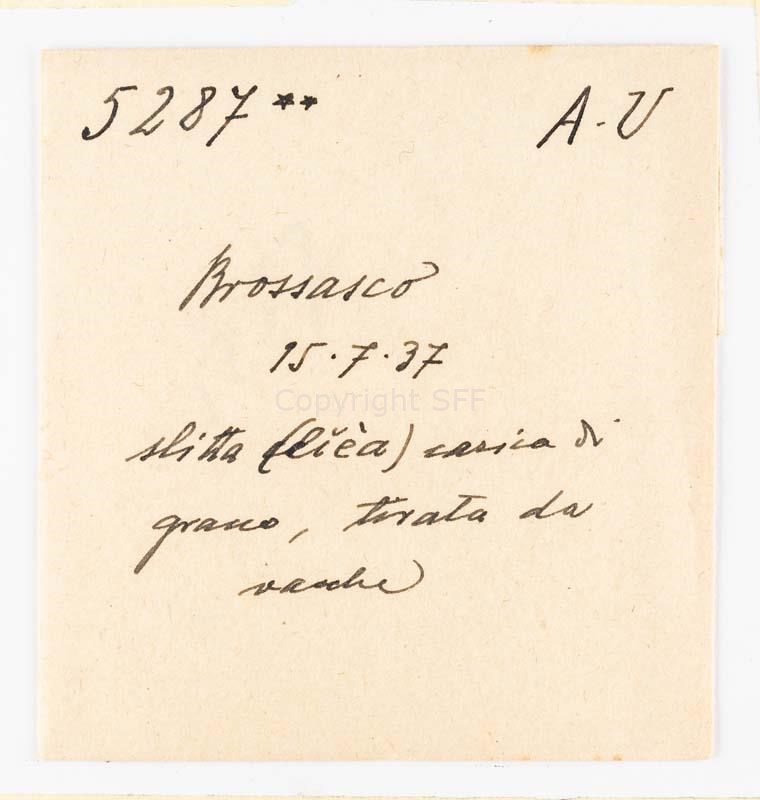 5287** A-V
Brossasco
15.7.37
Copyright SFF
slitta (lièa) carica di
grano, tirata da
vacche